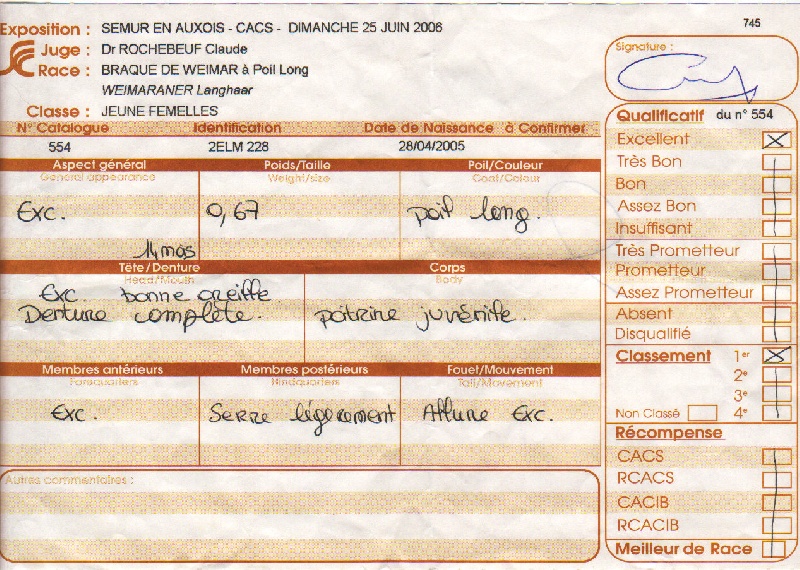 745
Exposition : SEMUR EN AUXOIS - CACS - DIMANCHE 25 JUIN 2006
Juge : Dr ROCHEBEUF Claude
Race : BRAQUE DE WEIMAR à Poil Long
WEIMARANER Langhaar
Classe : JEUNE FEMELLES
N° Catalogue Identification Date de Naissance à Confirmer
554 2ELM 228 28/04/2005
Aspect général Poids/Taille Poil/Couleur
General appearance Weight/size Coat/Colour
Exc. 0,67 poil long.
14 mois
Tête/Denture Corps
Head/Mouth Body
Exc. bonne oreille
Denture complète. poitrine juvénile.
Membres antérieurs Membres postérieurs Fouet/Mouvement
Forequarters Hindquarters Tail/Movement
Exc. Serre légèrement Allure Exc.
Autres commentaires :
Signature :
Qualificatif du n° 554
Excellent
Très Bon
Bon
Assez Bon
Insuffisant
Très Prometteur
Prometteur
Assez Prometteur
Absent
Disqualifié
Classement 1er
2e
3e
Non Classé 4e
Récompense
CACS
RCACS
CACIB
RCACIB
Meilleur de Race